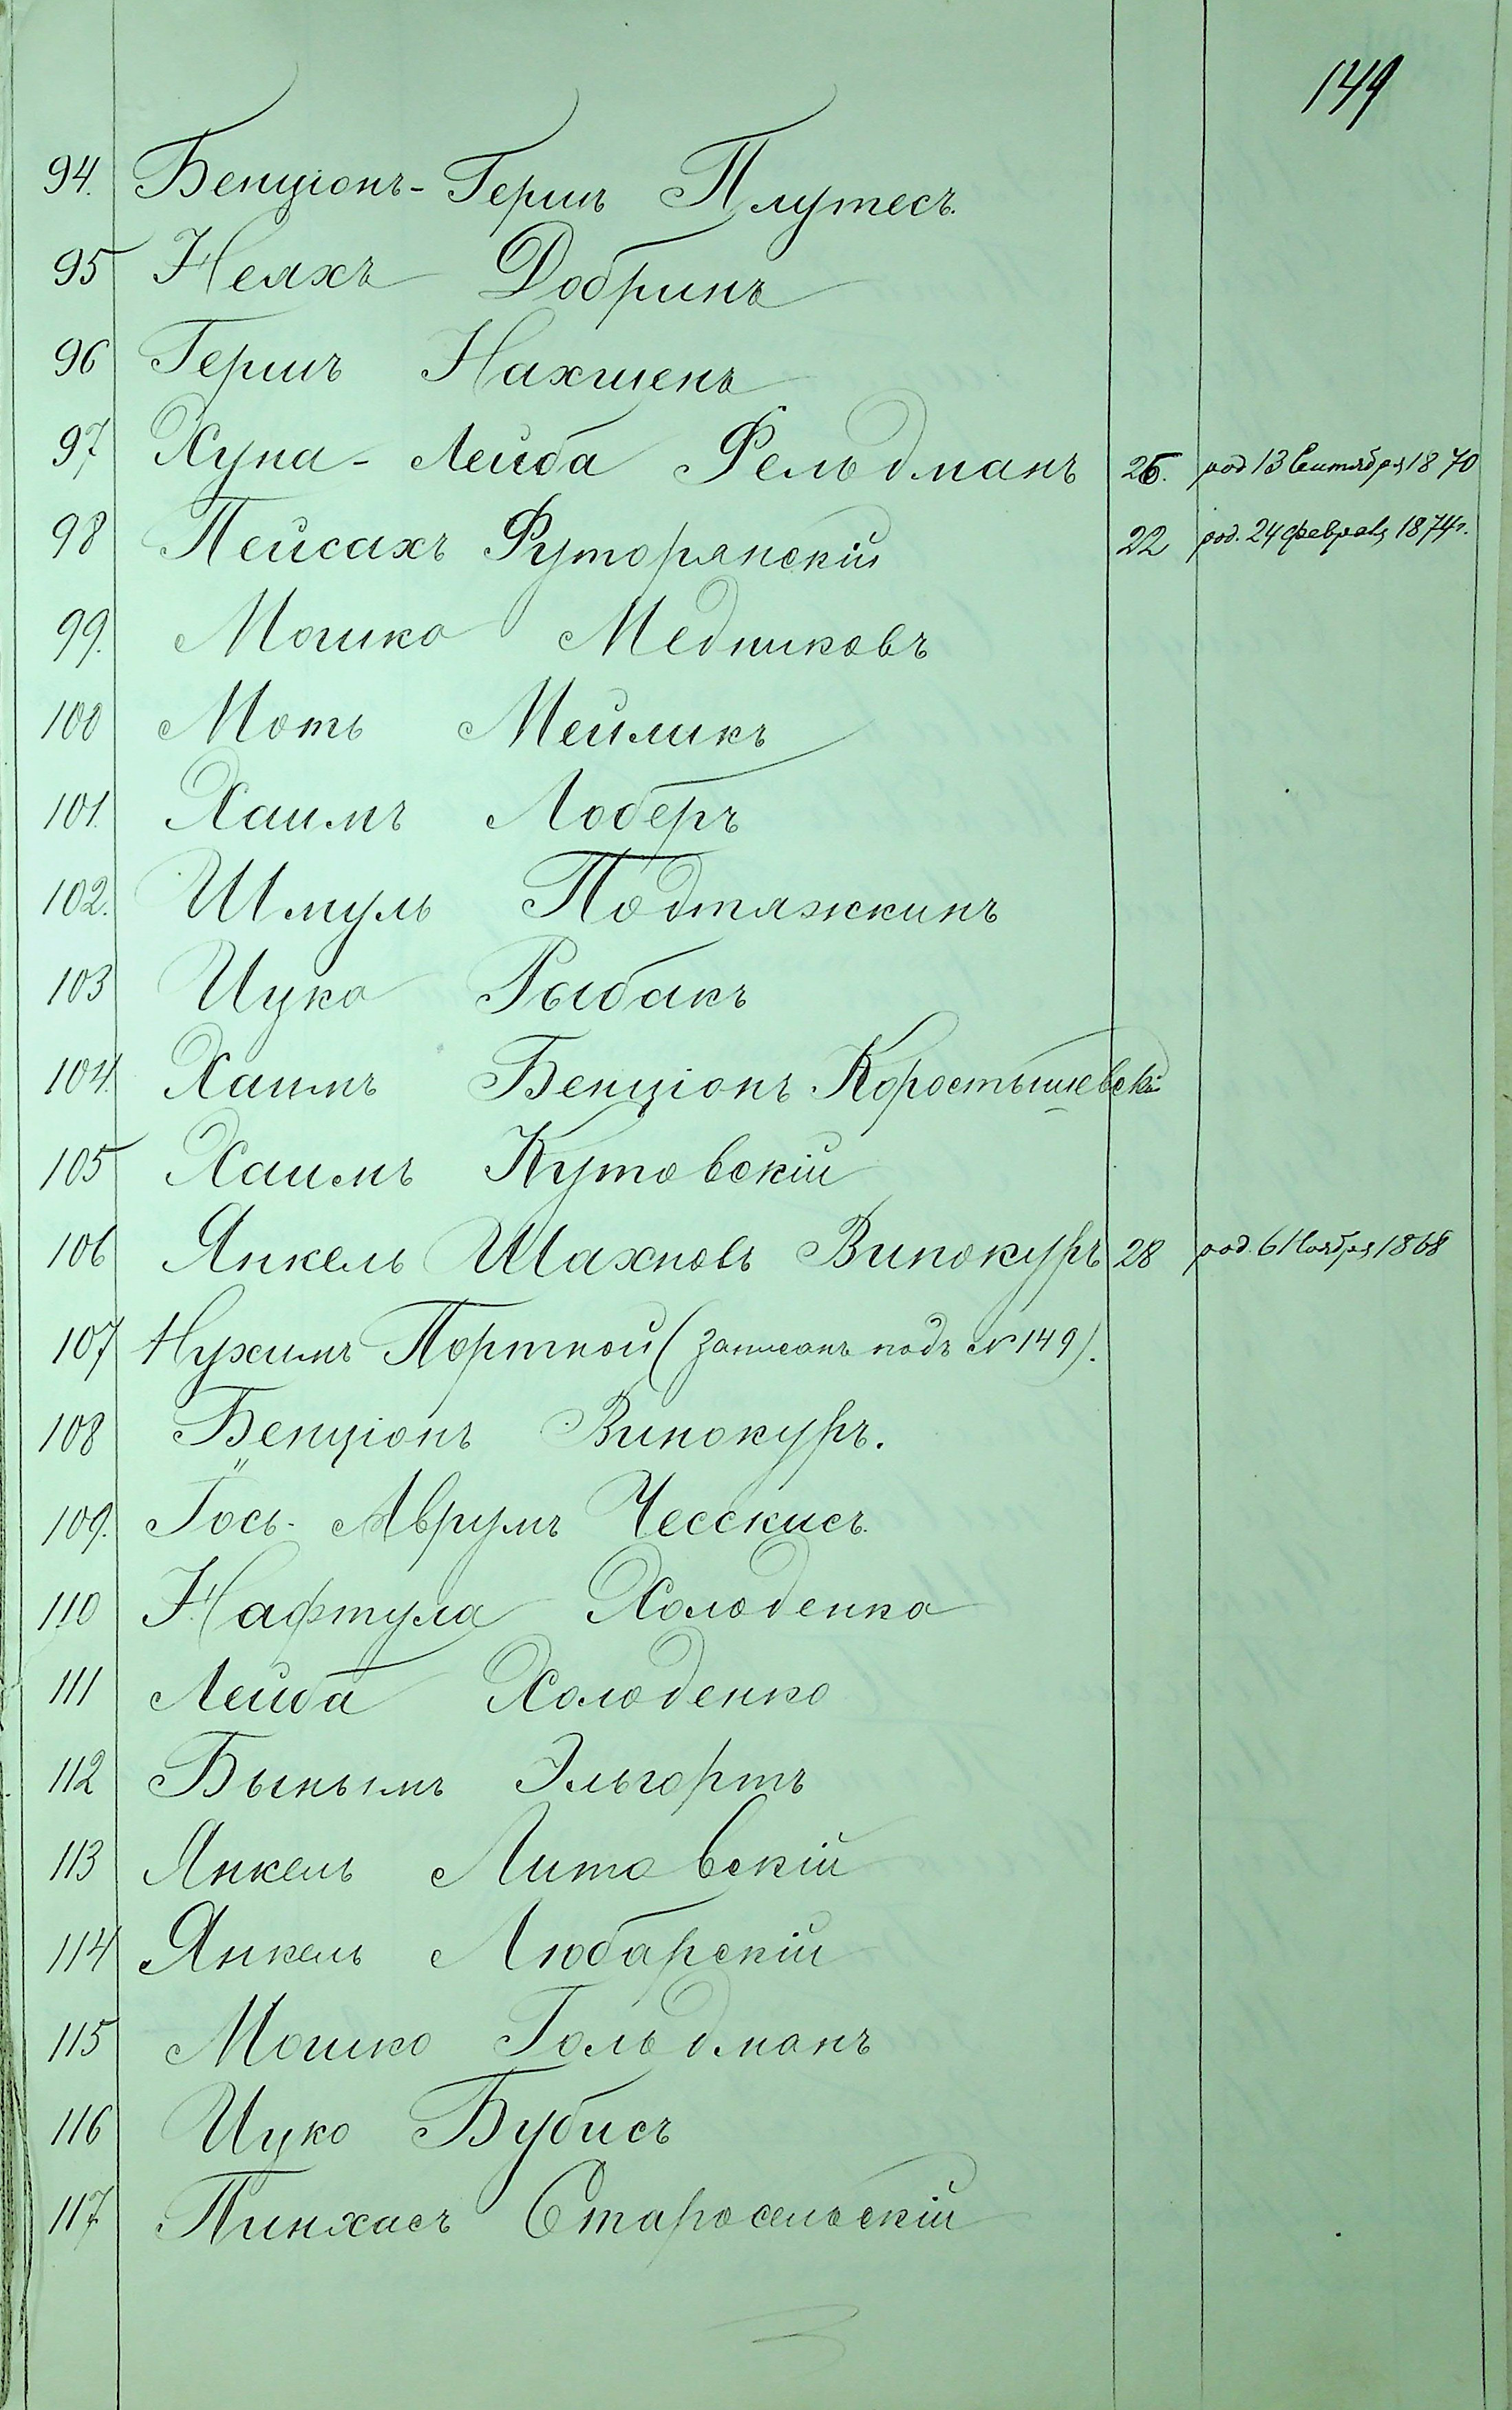 149
94. Бенціонъ-Гершъ Плутесъ.
95 Неяхъ Добринъ
96 Гершъ Нахшенъ
97 Хуна-Лейба Фельдманъ 26. род 13 Сентября 1870
98 Пейсахъ Футорянскій 22 род. 24 февраля 1874 г.
99. Мошко Медниковъ
100 Моть Мейликъ
101. Хаимъ Лоберъ
102. Шмуль Подтяжкинъ
103 Ицко Рыбакъ
104. Хаимъ Бенціонъ Коростышевскій
105 Хаимъ Кутовскій
106 Янкель Шахновъ Винокуръ 28 род. 6 Ноября 1868
107 Нухимъ Портной (записанъ подъ № 149).
108 Бенціонъ Винокуръ.
109. Іось-Аврумъ Чесскисъ.
110 Нафтула Холоденко
111 Лейба Холоденко
112 Бынымъ Эльгортъ
113 Янкель Литовскій
114 Янкель Любарскій
115 Мошко Гольдманъ
116 Ицко Бубисъ
117 Пинхасъ Старосельскій